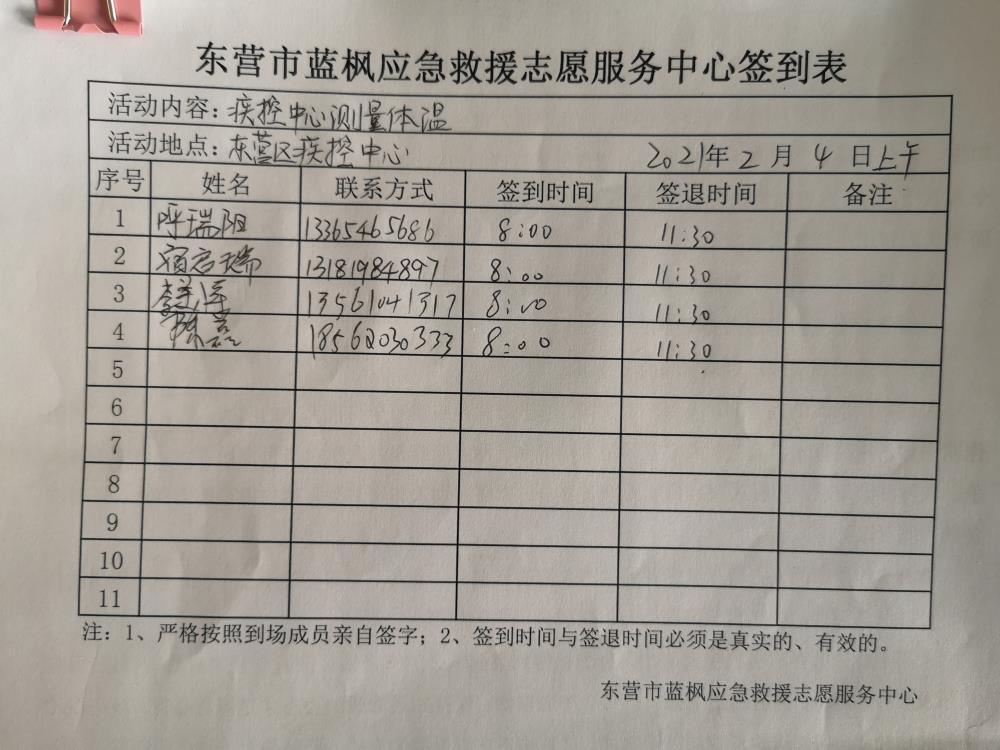 东营市蓝枫应急救援志愿服务中心签到表
活动内容：疾控中心测量体温
活动地点：东营区疾控中心 2021年2月4日上午
序号 姓名 联系方式 签到时间 签退时间 备注
1 呼瑞阳 13365465686 8:00 11:30
2 宿君瑞 13181984897 8:00 11:30
3 13561041317 8:00 11:30
4 陈磊 18562030333 8:00 11:30
5
6
7
8
9
10
11
注：1、严格按照到场成员亲自签字；2、签到时间与签退时间必须是真实的、有效的。
东营市蓝枫应急救援志愿服务中心